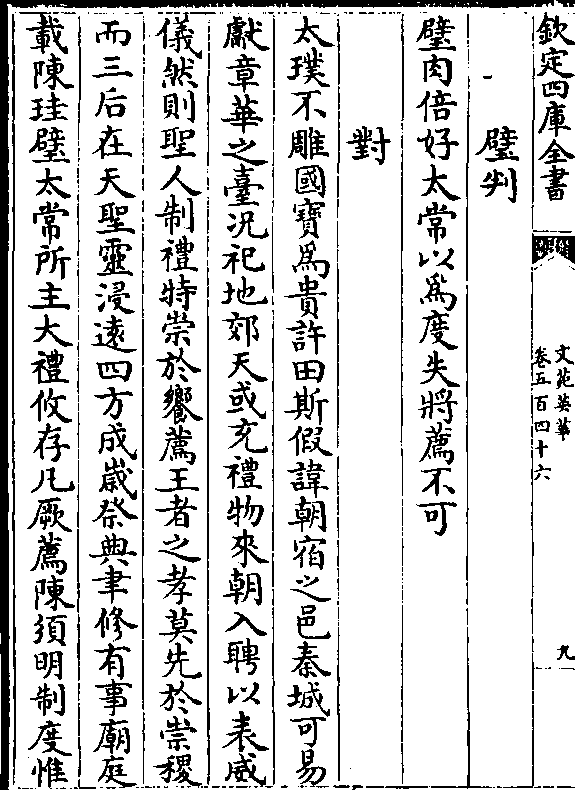 欽定四庫全書
文苑英華
卷五百四十六
九
璧判
璧肉倍好太常以為度失將薦不可
對
太璞不雕國寶為貴許田斯假諱朝宿之邑秦城可易
獻章華之臺況祀地郊天或充禮物來朝入聘以表威
儀然則聖人制禮特崇於饗薦王者之孝莫先於崇稷
而三后在天聖靈浸遠四方成歲祭典聿修有事廟庭
載陳珪璧太常所主大禮攸存凡厥薦陳須明制度惟